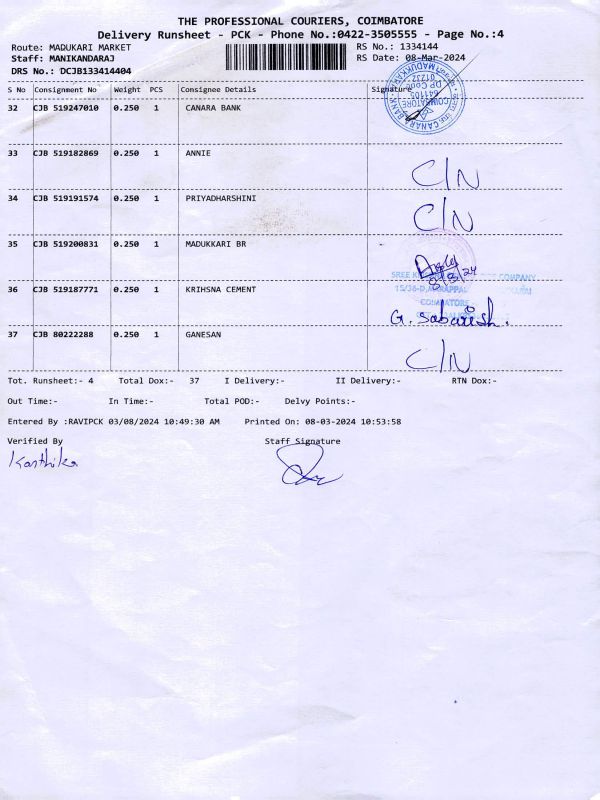 THE PROFESSIONAL COURIERS, COIMBATORE
Delivery Runsheet - PCK - Phone No.:0422-3505555 - Page No.:4
Route: MADUKARI MARKET RS No.: 1334144
Staff: MANIKANDARAJ RS Date: 08-Mar-2024
DRS No.: DCJB133414404
S No Consignment No Weight PCS Consignee Details Signature
32 CJB 519247010 0.250 1 CANARA BANK
CANARA BANK
COIMBATORE
641105
DP Code
01232
33 CJB 519182869 0.250 1 ANNIE
C/N
34 CJB 519191574 0.250 1 PRIYADHARSHINI
C/N
35 CJB 519200831 0.250 1 MADUKKARI BR
8/3/24
36 CJB 519187771 0.250 1 KRIHSNA CEMENT
SREE COMPANY
COIMBATORE
G. Sabarish.
37 CJB 80222288 0.250 1 GANESAN
C/N
Tot. Runsheet:- 4 Total Dox:- 37 I Delivery:- II Delivery:- RTN Dox:-
Out Time:- In Time:- Total POD:- Delvy Points:-
Entered By :RAVIPCK 03/08/2024 10:49:30 AM Printed On: 08-03-2024 10:53:58
Verified By Staff Signature
Karthika